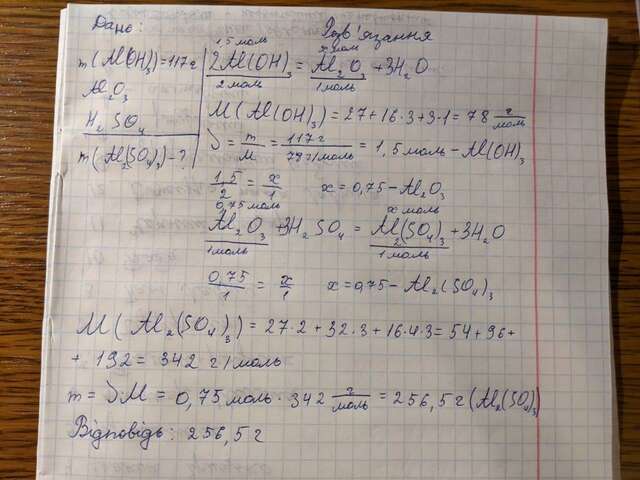 Дано:
m(Al(OH)₃)=117г
Al₂O₃
H₂SO₄
m(Al₂(SO₄)₃)=?
Розв'язання
1,5 моль x моль
2Al(OH)₃ = Al₂O₃ + 3H₂O
2 моль 1 моль
M(Al(OH)₃) = 27+16·3+3·1=78 г/моль
ν = m/M = 117г/78г/моль = 1,5 моль – Al(OH)₃
1,5/2 = x/1 x=0,75 – Al₂O₃
0,75 моль x моль
Al₂O₃ + 3H₂SO₄ = Al₂(SO₄)₃ + 3H₂O
1 моль 1 моль
0,75/1 = x/1 x=0,75 – Al₂(SO₄)₃
M(Al₂(SO₄)₃) = 27·2+32·3+16·4·3=54+96+
+ 192 = 342 г/моль
m = νM = 0,75 моль · 342 г/моль = 256,5 г (Al₂(SO₄)₃)
Відповідь: 256,5 г